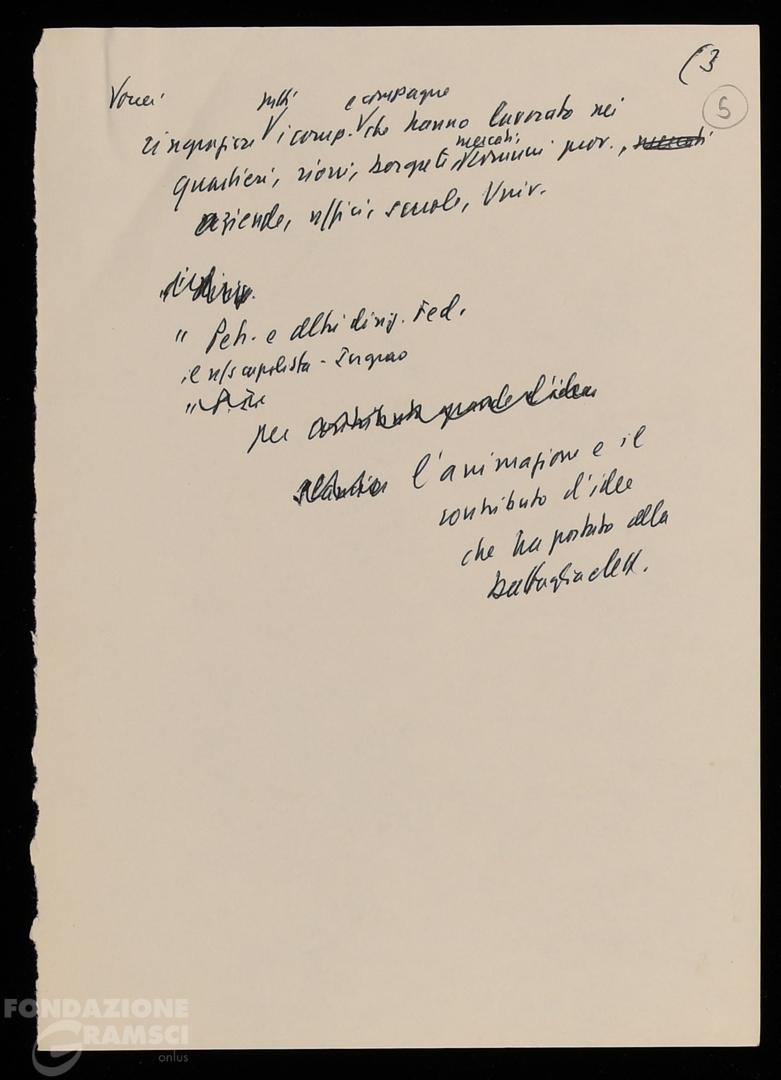 (3
5
Vorrei tutti e compagne
ringraziare V i comp. V che hanno lavorato nei
mercati,
quartieri, rioni, borgate, comuni prov., mercati
aziende, uffici, scuole, Univ.
" Petr. e altri dirig. Fed.
il n/s capolista - Ingrao
"
per contributo grande d'idee
slancio l'animazione e il
contributo d'idee
che ha portato alla
battaglia elett.
FONDAZIONE
GRAMSCI
onlus